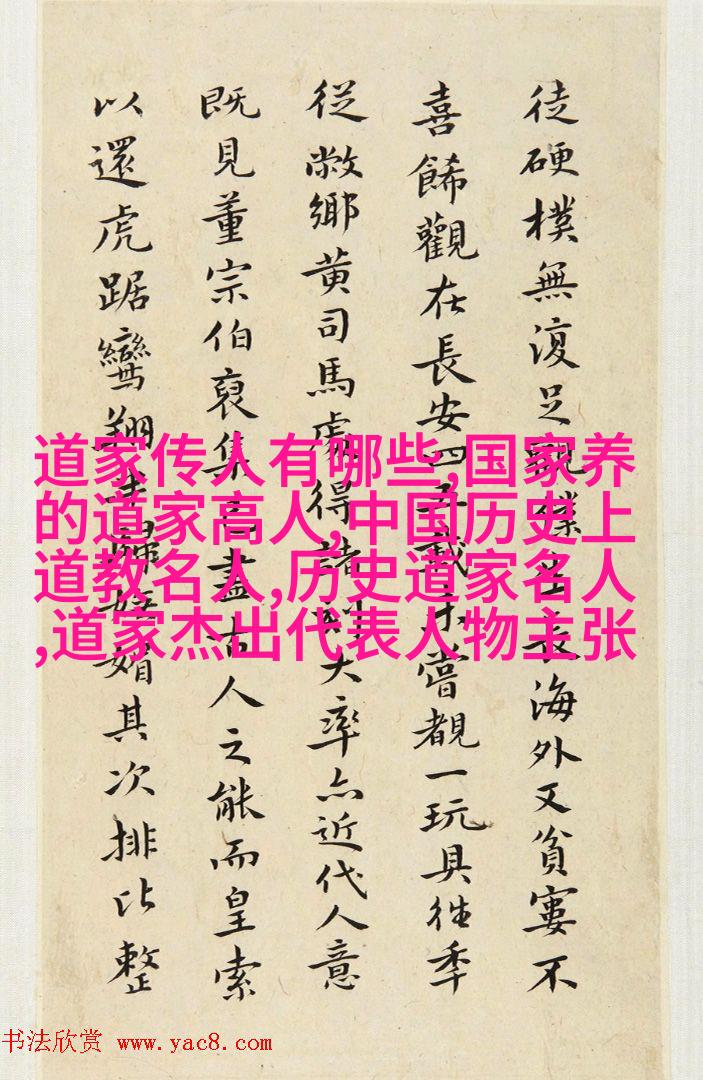 徒硬樸無復足觀僕生長海外又貧寠不
喜餙觀在長安四五載未嘗覩一玩具往季
從敝鄉黄司馬處得諸刻大率亦近代人意
既見董宗伯裒集盡古人之能而皇索
以還虎踞鸞翔媚其次排比整
道家传人有哪些,国家养
的道家高人,中国历史上
道教名人,历史道家名人
,道家杰出代表人物主张
书法欣赏 www.yac8.com